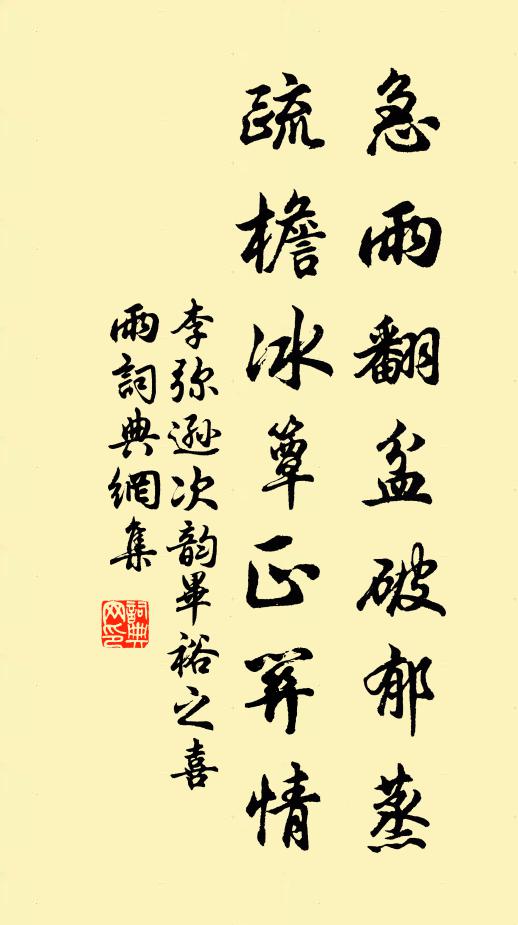 急雨翻盆破郁蒸
疏檐冰簟正關情
李弥遜次韵畢裕之喜
雨詞典網集
詞典
网印